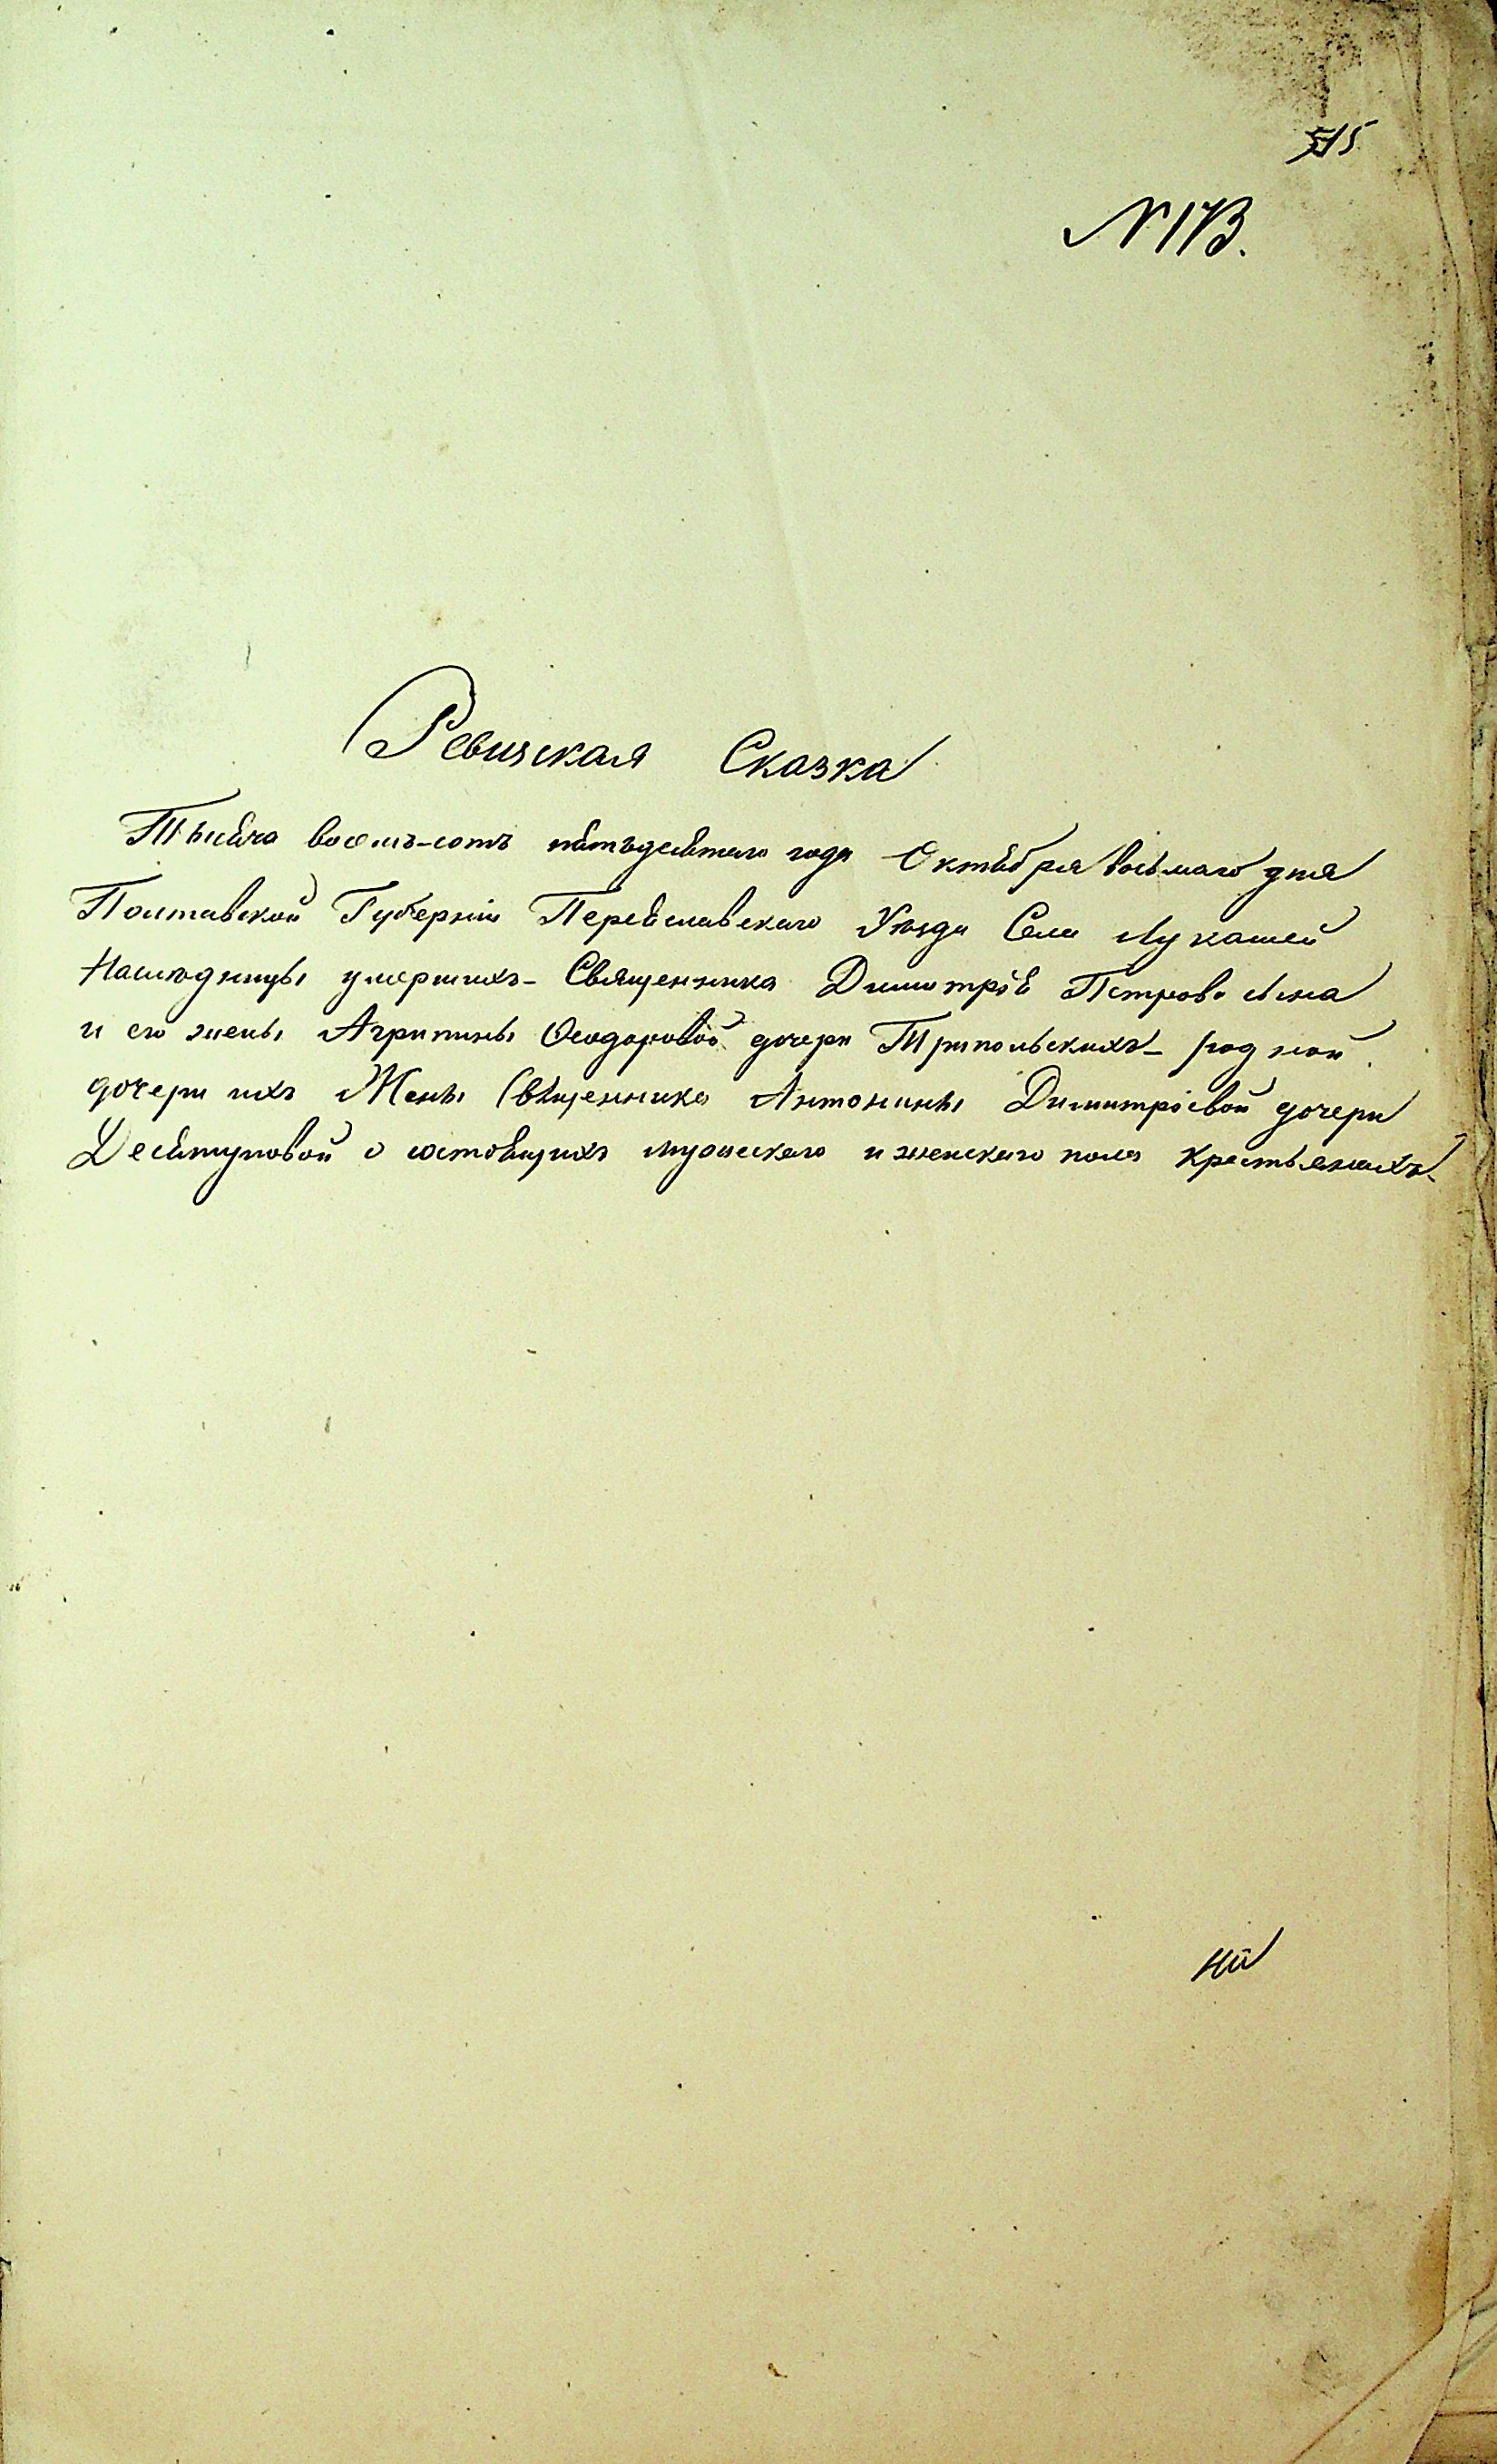 515
№ 173.
Ревизская Сказка
Тысяча восемь-сотъ пятьдесятаго года Октября восьмаго дня
Полтавской Губерніи Переяславскаго Уѣзда Села Лукашей
Наслѣдницы умершихъ Священника Димитрія Петрова сына
и его жены Агрипины Ѳеодоровой дочери Трипольскихъ родной
дочери ихъ Жены Священника Антонины Димитріевой дочери
о состоящихъ мужескаго и женскаго пола крестьянахъ